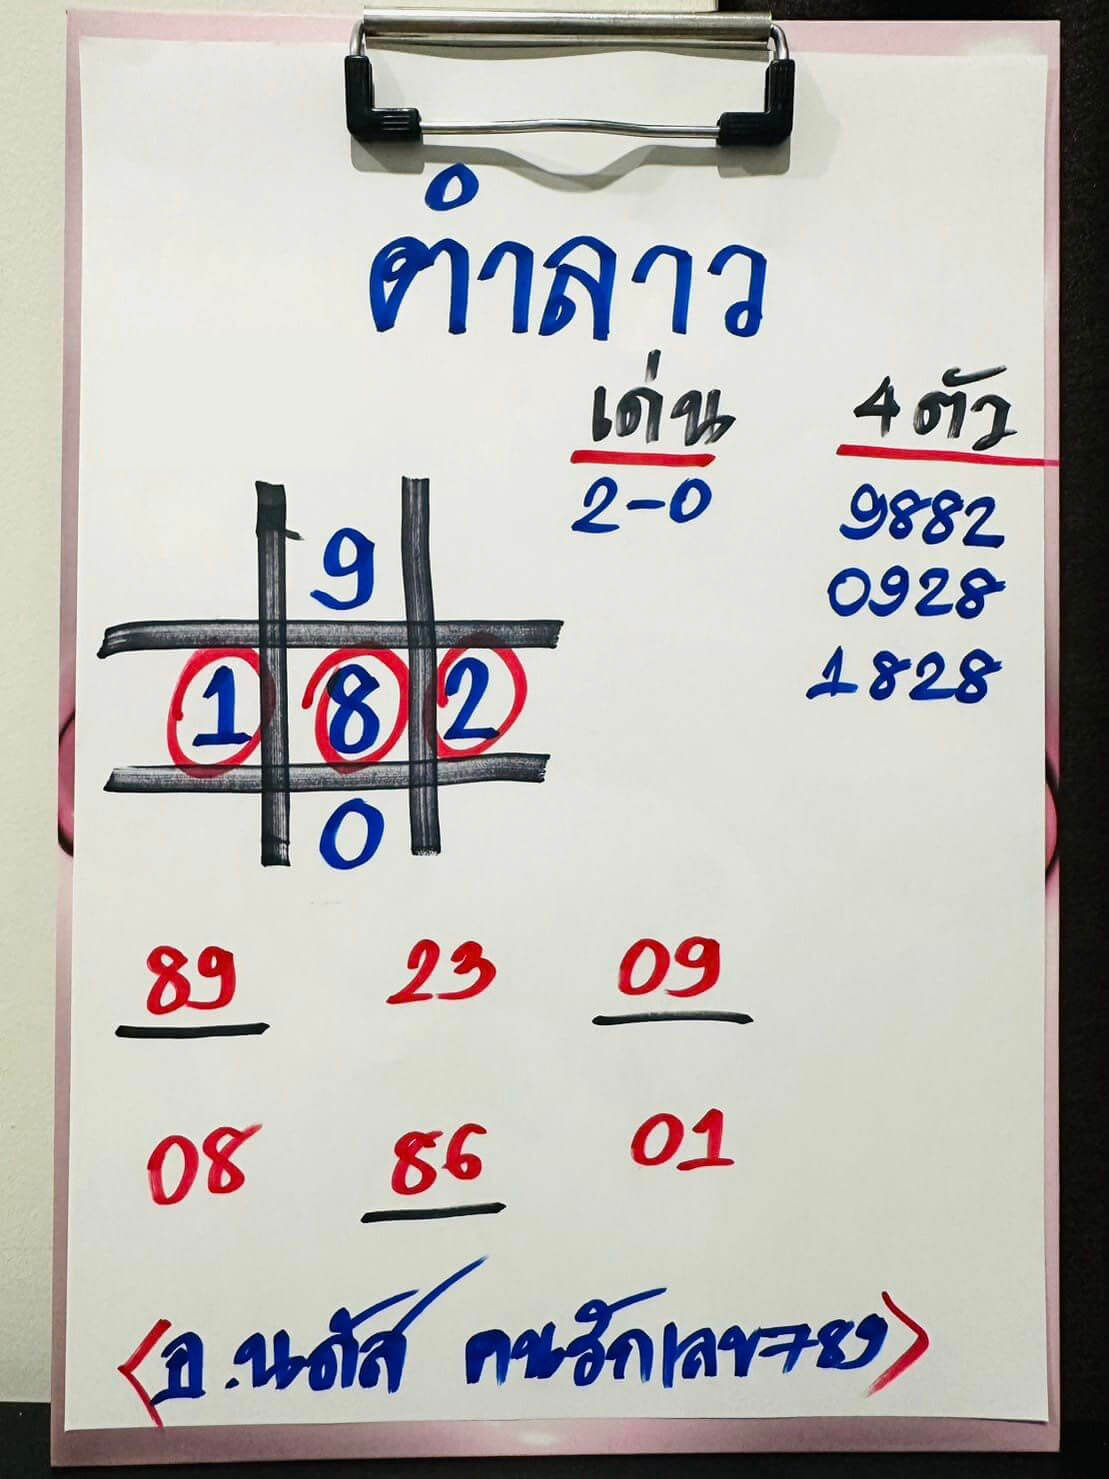 ตำลาว
เด่น 4 ตัว
2-0
9882
0928
1828
9
1 8 2
0
89 23 09
08 86 01
อ.นภัส คนรักเลข789